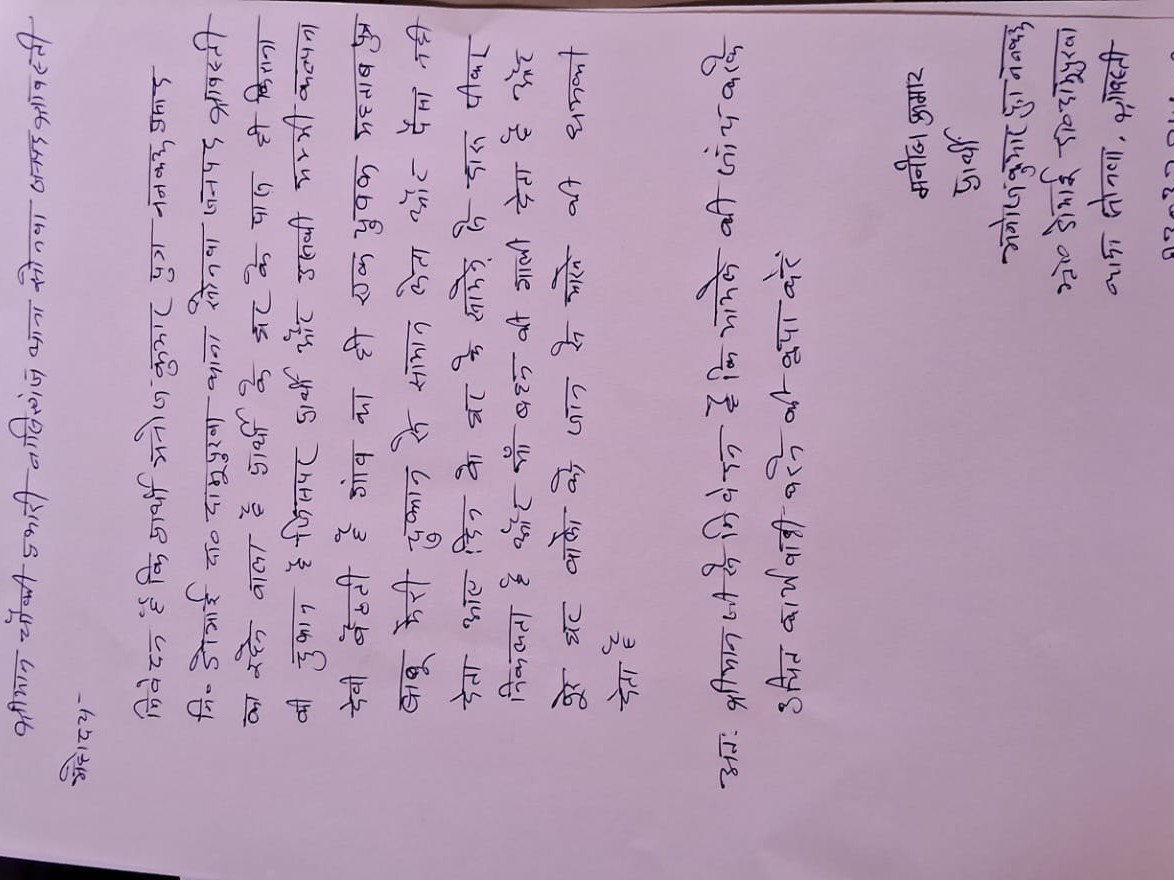 श्रीमान चौकी प्रभारी बदला चौराहा थाना सोनवा जनपद श्रावस्ती
महोदय -
निवेदन है कि प्रार्थी मनोज कुमार पुत्र ननकऊ प्रसाद
नि० डोभाई दा० चन्द्रपुरवा थाना सोनवा जनपद श्रावस्ती
का रहने वाला है प्रार्थी के घर के पास ही किराना
की दुकान है जिसपर प्रार्थी और उसकी पत्नी कल्पना
देवी बैठती है गांव का ही एक युवक महताब पुत्र
मेरी दुकान से सामान लेता और पैसा नही
देता आये दिन वो घर के सामने से दारू पीकर
निकलता है और माँ बहन की गाली देता है और
मेरे घर वालो को जान से मारने की धमकी
देता है
अतः श्रीमान जी से निवेदन है कि मामले की जांच करके
उचित कार्यवाही करने की कृपा करें
मनोज कुमार
प्रार्थी
मनोज कुमार पुत्र ननकऊ
ग्राम डोभाई दा० चन्द्रपुरवा
थाना सोनवा, श्रावस्ती